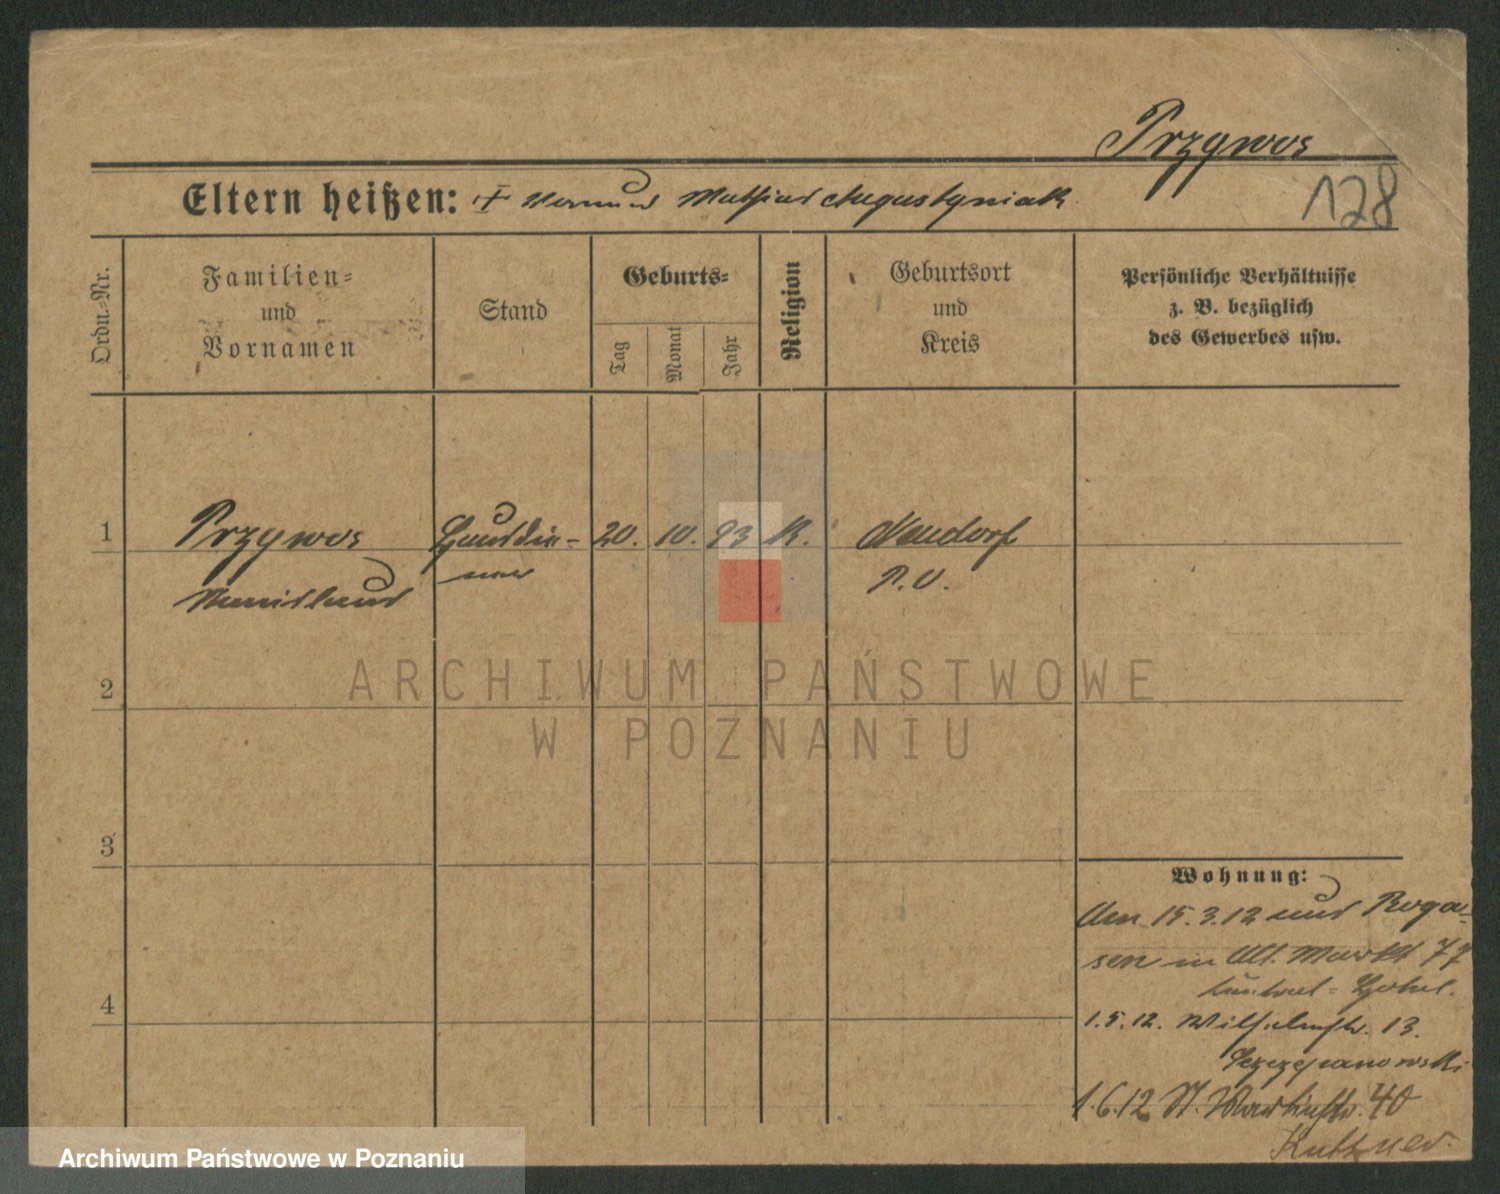 Przywos
Eltern heißen: + Vormund Mathias Augustyniak
128
Ordn.-Nr.
Familien-
und
Vornamen
Stand
Geburts-
Tag
Monat
Jahr
Religion
Geburtsort
und
Kreis
Persönliche Verhältnisse
z. B. bezüglich
des Gewerbes usw.
1
Przywos
Hausdie-
ner
20. 10. 93 K.
Neudorf
P. O.
2
3
4
Wohnung:
Am 15.3.12 aus Roga-
sen in Alt. Markt 77
Hotel.
1.5.12. Wilhelmstr. 13.
Szczepanowski
1.6.12 St. Martinstr. 40
Kuttner.
ARCHIWUM PAŃSTWOWE
W POZNANIU
Archiwum Państwowe w Poznaniu